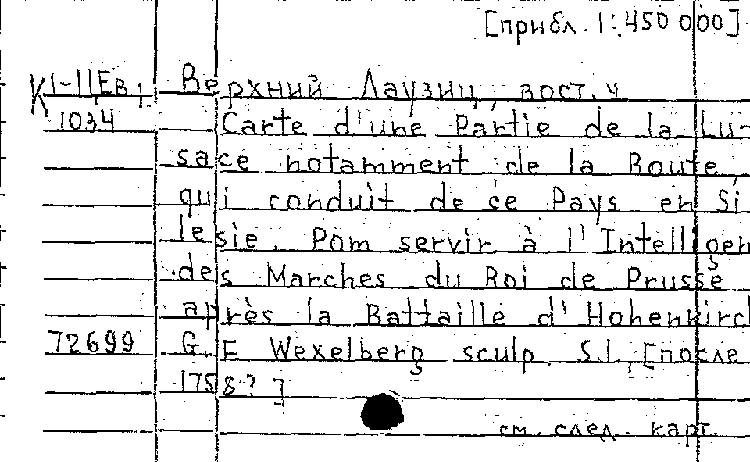 [прибл. 1:450 000]
К 1-ЦЕв. Верхний Лаузиц, вост. ч
1034 Carte d'une Partie de la Lu-
sace notamment de la Route,
qui conduit de ce Pays en Si
lesie. Pom servir à l'Intelligen
des Marches du Roi de Prusse
après la Battaille d'Hohenkirch
72699 G. E Wexelberg sculp. S.l., [после
1758?]
см. след. карт.